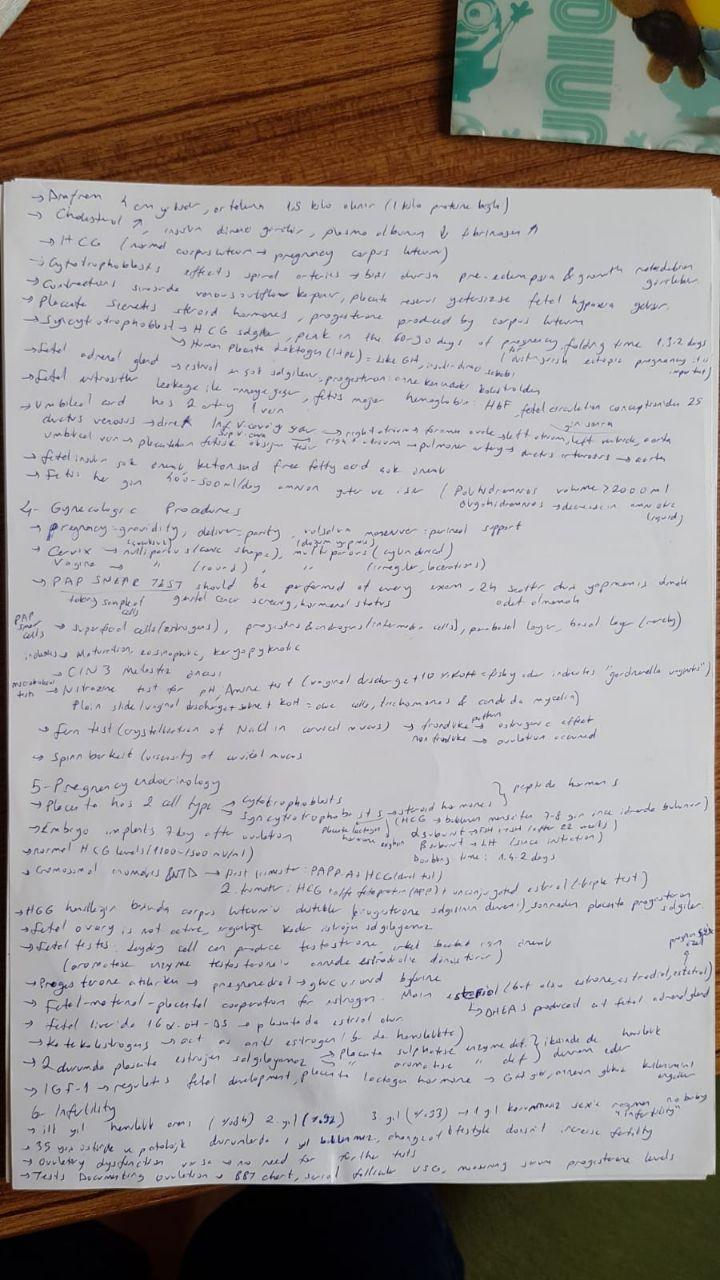 UNIQ
→ Diafram 4 cm yukarı, ortalama 1.5 kilo alınır (1 kilo proteine bağlı)
→ Cholestrol ↑, insulin direnci görülür, plasma albumin ↓ fibrinogen ↑
→ HCG (normal corpus luteum → pregnancy corpus luteum)
→ Cytotrophoblasts effects spiral arteries → bozulursa pre-eclampsia & growth retardation görülebilir
→ Contractions sırasında venous outflow kapanır, placenta reserve fetal hypoxia gelişir.
→ Placenta secretes steroid hormones, progesterone produced by corpus luteum
→ Syncytiotrophoblast → HCG salgılar, peak in the 60-90 days of pregnancy, folding time 1.3-2 days
→ Human Placenta Laktogen (HPL) = Like GH, insulin direnci sebebi (distinguish ectopic pregnancy it is important)
→ Fetal adrenal gland → estriol en çok salgılanır, progesteron: anne kanındaki kolesterolden
→ Fetal eritrositler leakage ile anneye geçer, fetus major hemoglobin: HbF, fetal circulation conceptiondan 25 gün sonra
→ Umbilical cord has 2 artery 1 vein
ductus venosus → direk Inf. v. cava'ya → right atrium → foramen ovale → left atrium, left ventricle, aorta
umbilical vein → placentadan fetusa oksijen taşır sup. v. cava → right atrium → pulmoner artery → ductus arteriosus → aorta
→ Fetal insulin çok önemli, keton and free fatty acid çok önemli
→ Fetus her gün 400-500 ml/day amnion yutar ve işer (Polihidramnios volume > 2000 ml
Oligohidramnios → decrease in amniotic liquid)
4- Gynecologic Procedures
→ pregnancy = gravidity, deliver = parity, valsalva maneuver = perineal support
→ Cervix → nulliparous (conic shape), multiparous (cylindirical)
Vagina → " (round), " (irregular, lacerations)
→ PAP SMEAR TEST should be performed of every exam. 24 saattir duş yapmamış olmak
taking sample of cells genital cancer screening, hormonal status adet olmamak
PAP smear cells → superficial cells (estrogens), progestins & androgens (intermediate cells), parabasal layer, basal layer (rarely)
indexes → Maturation, eosinophilic, karyopyknotic
→ CIN 3 öncesi
microbial tests → Nitrazine test for pH, Amine test (vaginal discharge + 10 % KOH = fishy odor indicates "gardnerella vaginitis")
Plain slide (vaginal discharge + KOH = clue cells, trichomonas & candida mycelia)
→ Fern test (crystallization of NaCl in cervical mucus) → frondlike pattern → estrogenic effect
non frondlike → ovulation occured
→ Spinnbarkeit (viscosity of cervical mucus
5- Pregnancy endocrinology
→ Placenta has 2 cell type → Cytotrophoblasts } peptide hormons
Syncytiotrophoblasts → steroid hormones
→ Embryo implants 7 day after ovulation placenta lactogen hormone (HCG → beklenen menstten 7-8 gün önce idrarda bulunur)
→ normal HCG levels (1100-1500 mU/ml) α subunit → FSH (rise after 22 weeks)
β subunit → LH (since initiation)
Doubling time: 1.4-2 days
→ Cromosomal anomalies & NTD → first trimester: PAPP-A + HCG (dual test)
2. trimester: HCG + alfa fetoprotein (AFP) + unconjugated estriol (triple test)
→ HCG hamileliğin başında corpus luteumu destekler (progesterone salgısının devamı), sonradan placenta progesteron salgılar.
→ Fetal ovary is not active, kadar östrojen salgılayamaz
→ Fetal testes: Leydig cell can produce testosterone, erkek bebek için önemli
(aromatase enzyme testosterone'u annede estradiole dönüştürür)
→ Progesterone atılırken → pregnanediol → glucuronid
→ Fetal-maternal-placental cooperation for estrogen. Main estriol (but also estrone, estradiol, estetrol)
→ DHEAS produced at fetal adrenal gland
→ fetal liver'da 16 α-OH-DS → plasentada estriol olur
→ Katekolestrogens → act as anti estrogen
→ 2 durumda placenta estrojen salgılayamaz → Placenta sulphatase enzyme def. } ikisinde de hamilelik devam eder
→ " aromatase " def.
→ IGF-1 → regulates fetal development, placenta lactogen hormone → GH gibi, annenin glikoz kullanımını engeller
6- Infertility
→ ilk yıl hamilelik oranı (%84) 2. yıl (%92) 3. yıl (%93) → 1 yıl korunmasız sexe rağmen no baby "infertility"
→ 35 yaş üstünde ve patolojik durumlarda 1 yıl beklenmez, change of lifestyle doesn't increase fertility
→ Ovulatory dysfunction varsa → no need for further tests
→ Tests Documenting ovulation → BBT chart, serial follicular USG, measuring serum progesterone levels